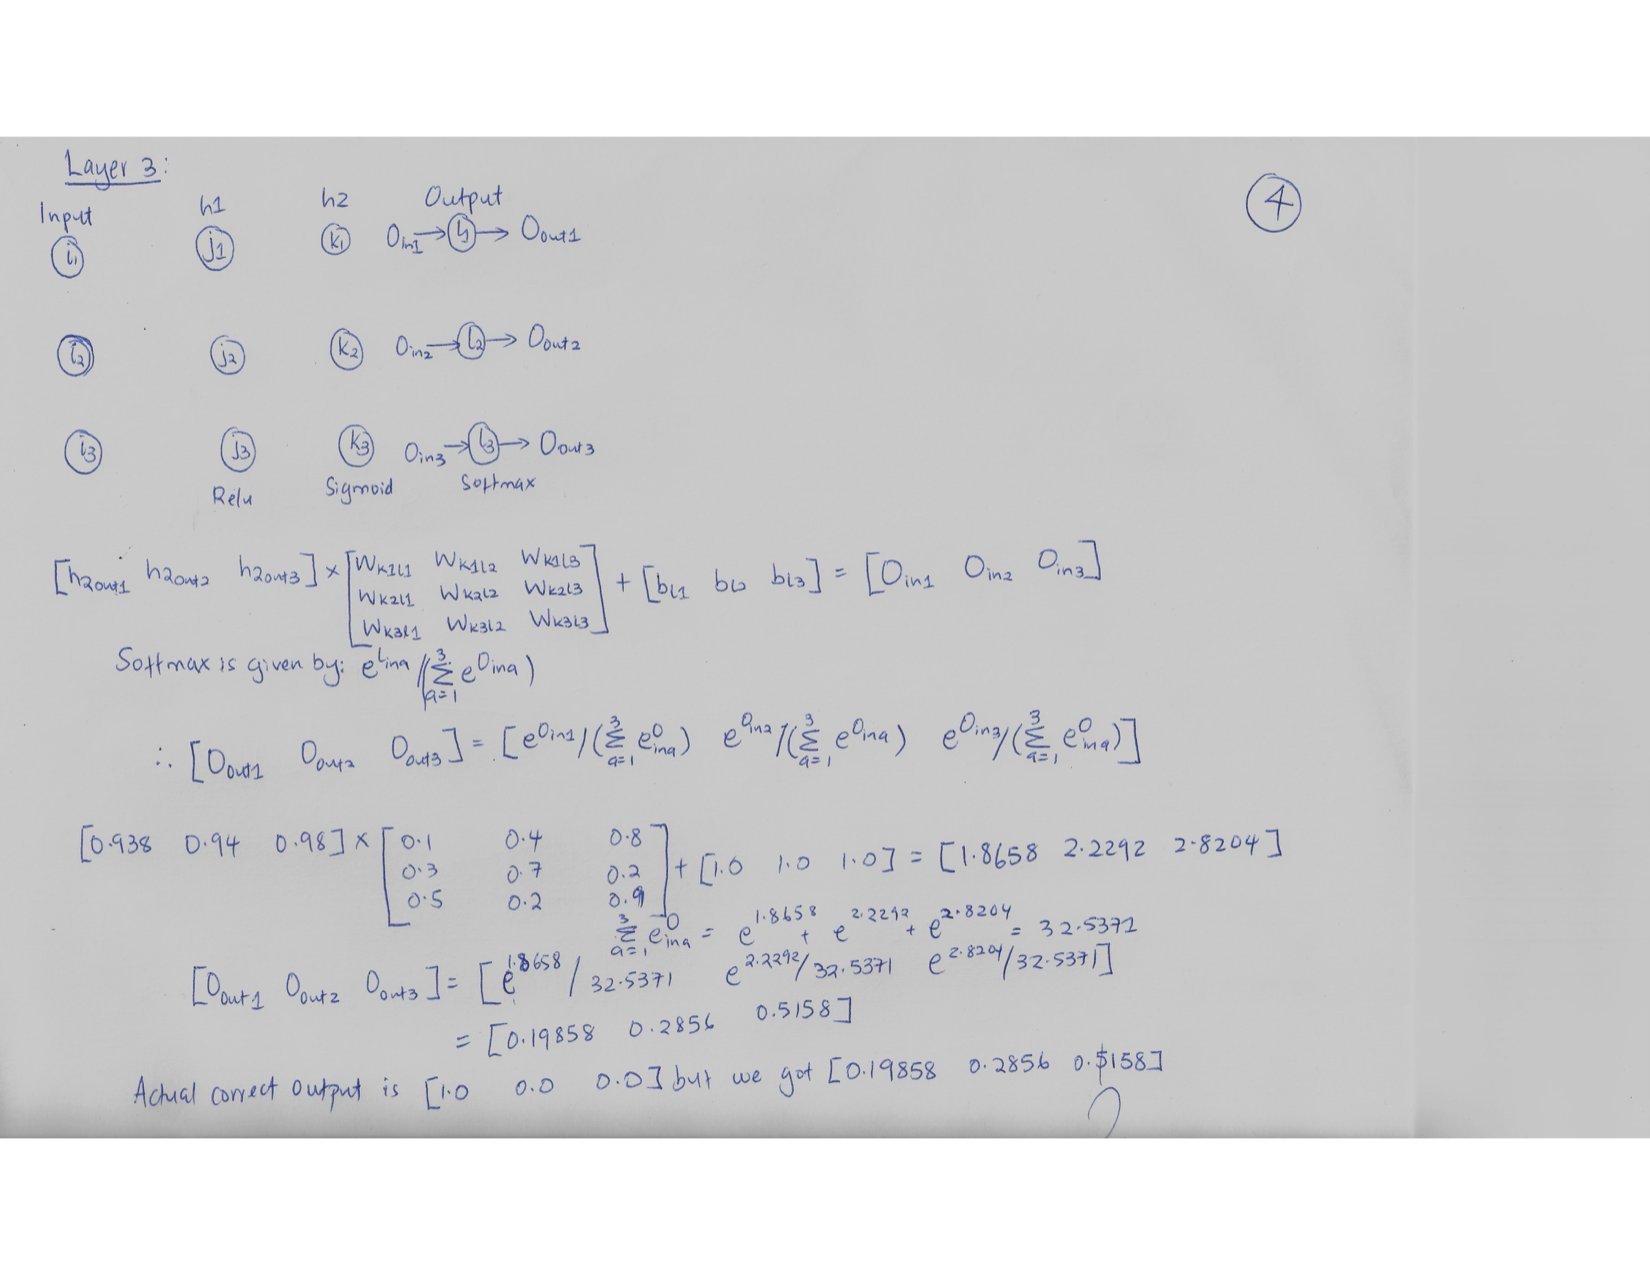 Layer 3:
④
Input h1 h2 Output
i1 j1 k1 Oin1 → l1 → Oout1
i2 j2 k2 Oin2 → l2 → Oout2
i3 j3 k3 Oin3 → l3 → Oout3
Relu Sigmoid Softmax
[h2out1 h2out2 h2out3] × [Wk1l1 Wk1l2 Wk1l3
Wk2l1 Wk2l2 Wk2l3
Wk3l1 Wk3l2 Wk3l3] + [bl1 bl2 bl3] = [Oin1 Oin2 Oin3]
Softmax is given by: e^lina / (Σ_{a=1}^{3} e^Oina)
∴ [Oout1 Oout2 Oout3] = [e^Oin1/(Σ_{a=1}^{3} e^Oina) e^Oin2/(Σ_{a=1}^{3} e^Oina) e^Oin3/(Σ_{a=1}^{3} e^Oina)]
[0.938 0.94 0.98] × [0.1 0.4 0.8
0.3 0.7 0.2
0.5 0.2 0.9] + [1.0 1.0 1.0] = [1.8658 2.2292 2.8204]
Σ_{a=1}^{3} e^Oina = e^1.8658 + e^2.2292 + e^2.8204 = 32.5371
[Oout1 Oout2 Oout3] = [e^1.8658 / 32.5371 e^2.2292/32.5371 e^2.8204/32.5371]
= [0.19858 0.2856 0.5158]
Actual correct output is [1.0 0.0 0.0] but we got [0.19858 0.2856 0.5158]